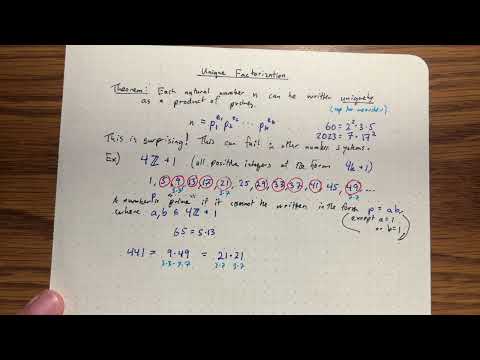 Unique Factorization
Theorem: Each natural number n can be written uniquely
as a product of primes. (up to reorder)
n = p₁^e₁ p₂^e₂ ⋯ pₖ^eₖ
60 = 2²·3·5
2023 = 7·17²
This is surprising! This can fail in other number systems.
Ex) 4ℤ+1 (all positive integers of the form 4k+1)
1, 5, 9, 13, 17, 21, 25, 29, 33, 37, 41, 45, 49, ...
3·3 3·7 7·7
A number is "prime" if it cannot be written in the form p = ab,
where a, b ∈ 4ℤ+1
(except a=1
or b=1)
65 = 5·13
441 = 9·49 = 21·21
3·3·7·7 3·7 3·7